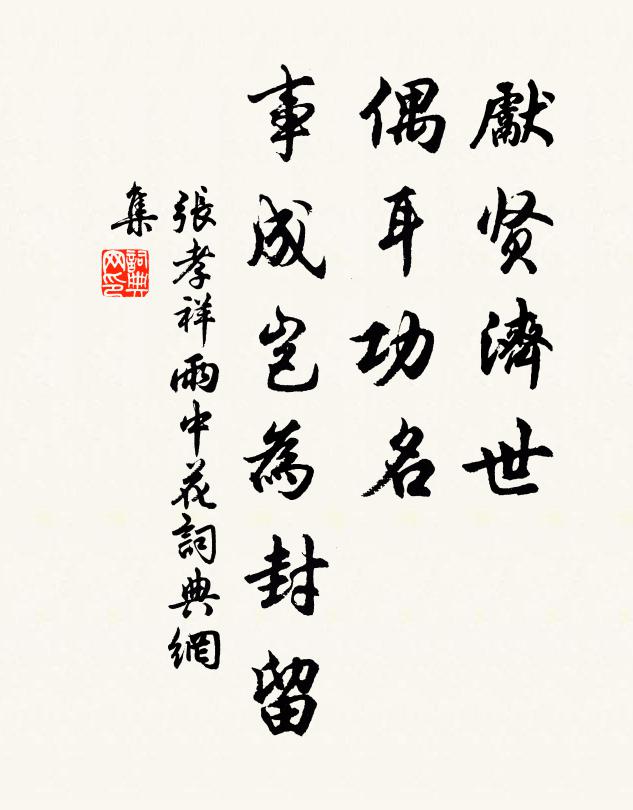 獻贤濟世
偶耳功名
事成岂為封留
張孝祥雨中花詞典網
集
詞典网印